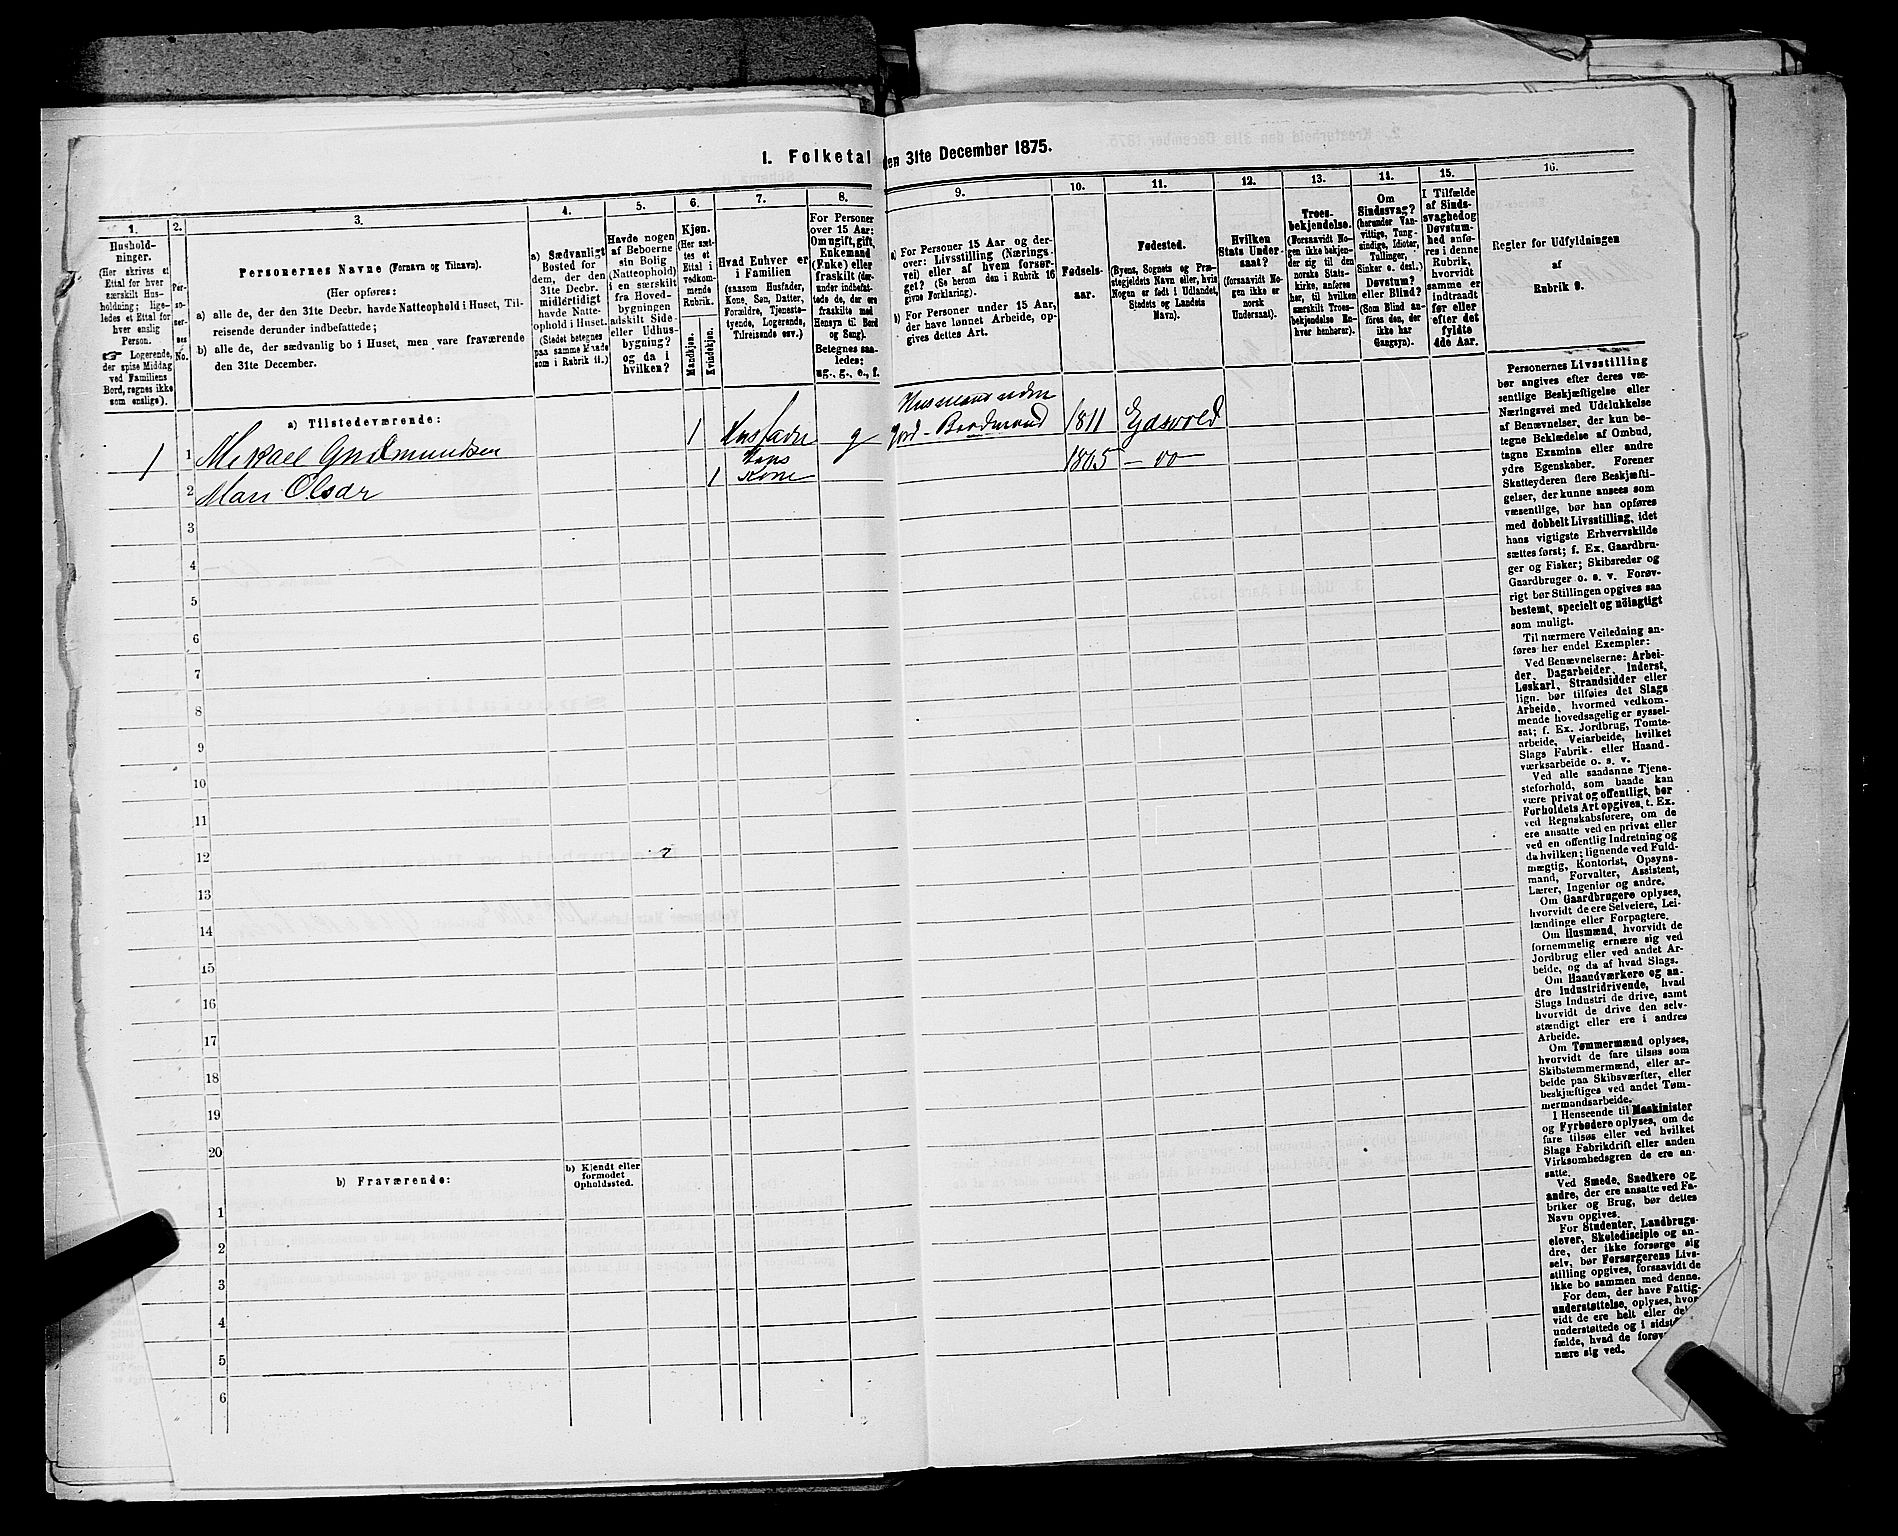 1. Folketal den 31te December 1875.
1.
Hushold-
ninger.
(Her skrives et
Ettal for hver
særskilt Hus-
holdning; lige-
ledes et Ettal for
hver enslig
Person.
☞ Logerende,
der spise Middag
ved Familiens
Bord, regnes ikke
som enslige).
2.
Per-
so-
ner-
nes
No.
3.
Personernes Navne (Fornavn og Tilnavn).
(Her opføres:
a) alle de, der den 31te Decbr. havde Natteophold i Huset, Til-
reisende derunder indbefattede;
b) alle de, der sædvanlig bo i Huset, men vare fraværende
den 31te December.
4.
a) Sædvanligt
Bosted for
dem, der den
31te Decbr.
midlertidigt
havde Natte-
ophold i Huset.
(Stedet betegnes
paa samme Maade
som i Rubrik 11.)
5.
Havde nogen
af Beboerne
sin Bolig
(Natteophold)
i en særskilt
fra Hoved-
bygningen
adskilt Side-
eller Udhus-
bygning?
og da i
hvilken?
6.
Kjøn.
(Her sæt-
tes et
Ettal i
vedkom-
mende
Rubrik.
Mandkjøn.
Kvindekjøn.
7.
Hvad Enhver er
i Familien
(saasom Husfader,
Kone, Søn, Datter,
Forældre, Tjeneste-
tyende, Logerende,
Tilreisende osv.)
8.
For Personer
over 15 Aar:
Om ugift, gift,
Enkemand
(Enke) eller
fraskilt (der-
under indbefat-
tede de, der ere
fraskilte med
Hensyn til Bord
og Seng).
Betegnes saa-
ledes:
ug., g., e., f.
9.
a) For Personer 15 Aar og der-
over: Livsstilling (Nærings-
vei) eller af hvem forsør-
get? (Se herom den i Rubrik 16
givne Forklaring).
b) For Personer under 15 Aar,
der have lønnet Arbeide, op-
gives dettes Art.
10.
Fødsels-
aar.
11.
Fødested.
(Byens, Sognets og Præ-
stegjeldets Navn eller, hvis
Nogen er født i Udlandet,
Stedets og Landets
Navn).
12.
Hvilken
Stats Under-
saat?
(forsaavidt No-
gen ikke er
norsk
Undersaat).
13.
Troes-
bekjendelse.
(Forsaavidt No-
gen ikke bekjen-
der sig til den
norske Stats-
kirke, anføres
her, til hvilken
særskilt Troes-
bekjendelse En-
hver henhører).
14.
Om
Sindssvag?
(herunder Van-
vittige, Tung-
sindige, Idioter,
Tullinger,
Sinker o. desl.)
Døvstum?
eller Blind?
(Som Blind an-
føres den, der
ikke har
Gangsyn).
15.
I Tilfælde
af Sinds-
svaghed og
Døvstum-
hed anfø-
res i denne
Rubrik,
hvorvidt
samme er
indtraadt
før eller
efter det
fyldte
4de Aar.
16.
Regler for Udfyldningen
af
Rubrik 9.
a) Tilstedeværende:
1 1 Mikael Gudmundsen 1 Husfader g Husmand uden Jord - Brødmand 1811 Eidsvold
2 Mari Olsdr 1 Hans Kone 1805 - do -
3
4
5
6
7
8
9
10
11
12
13
14
15
16
17
18
19
20
b) Fraværende:
b) Kjendt eller
formodet
Opholdssted.
1
2
3
4
5
6
Personernes Livsstilling
bør angives efter deres væ-
sentlige Beskjæftigelse eller
Næringsvei med Udelukkelse
af Benævnelser, der kun be-
tegne Beklædelse af Ombud,
tagne Examina eller andre
ydre Egenskaber. Forener
Skatteyderen flere Beskjæfti-
gelser, der kunne ansees som
væsentlige, bør han opføres
med dobbelt Livsstilling, idet
hans vigtigste Erhvervskilde
sættes først; f. Ex. Gaardbru-
ger og Fisker; Skibsreder og
Gaardbruger o. s. v. Forøv-
rigt bør Stillingen opgives saa
bestemt, specielt og nöiagtigt
som muligt.
Til nærmere Veiledning an-
føres her endel Exempler:
Ved Benævnelserne: Arbei-
der, Dagarbeider, Inderst,
Løskarl, Strandsidder eller
lign. bør tilføies det Slags
Arbeide, hvormed vedkom-
mende hovedsagelig er syssel-
sat; f. Ex. Jordbrug, Tomte-
arbeide, Veiarbeide, hvilket
Slags Fabrik- eller Haand-
værksarbeide o. s. v.
Ved alle saadanne Tjene-
steforhold, som baade kan
være privat og offentligt, bør
Forholdets Art opgives, t. Ex.
ved Regnskabsførere, om de
ere ansatte ved en privat eller
ved en offentlig Indretning og
da hvilken; lignende ved Fuld-
mægtig, Kontorist, Opsyns-
mand, Forvalter, Assistent,
Lærer, Ingeniør og andre.
Om Gaardbrugere oplyses,
hvorvidt de ere Selveiere, Lei-
lændinge eller Forpagtere.
Om Husmænd, hvorvidt de
fornemmelig ernære sig ved
Jordbrug eller ved andet Ar-
beide, og da af hvad Slags.
Om Haandværkere og an-
dre Industridrivende, hvad
Slags Industri de drive, samt
hvorvidt de drive den selv-
stændigt eller ere i andres
Arbeide.
Om Tømmermænd oplyses,
hvorvidt de fare tilsøs som
Skibstømmermænd, eller ar-
beide paa Skibsværfter, eller
beskjæftiges ved andet Tøm-
mermandsarbeide.
I Henseende til Maskinister
og Fyrbødere oplyses, om de
fare tilsøs eller ved hvilket
Slags Fabrikdrift eller anden
Virksomhedsgren de ere an-
satte.
Ved Smede, Snedkere og
andre, der ere ansatte ved Fa-
briker og Brug, bør dettes
Navn opgives.
For Studenter, Landbrugs-
elever, Skoledisciple og an-
dre, der ikke forsørge sig
selv, bør Forsørgerens Livs-
stilling opgives, forsaavidt de
ikke bo sammen med denne.
For dem, der have Fattig-
understøttelse, oplyses, hvor-
vidt de ere helt eller
understøttede og i
fælde, hvad de
nære sig ved.